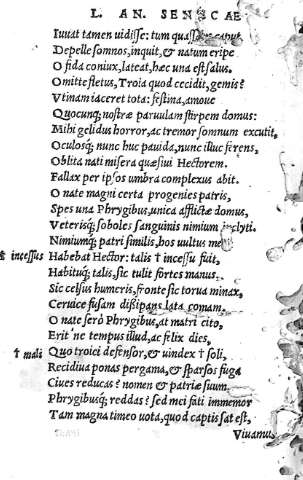 L. AN. SENECAE
Iuuat tamen uidisse: tum quassans caput,
Depelle somnos, inquit, & natum eripe
O fida coniux, lateat, hæc una est salus.
Omitte fletus, Troia quod cecidit, gemis?
Vtinam iaceret tota: festina, amoue
Quocunq; nostræ paruulam stirpem domus:
Mihi gelidus horror, ac tremor somnum excutit,
Oculosq; nunc huc pauida, nunc illuc ferens,
Oblita nati misera quæsiui Hectorem.
Fallax per ipsos umbra complexus abit.
O nate magni certa progenies patris,
Spes una Phrygibus, unica afflictæ domus,
Veterisq; soboles sanguinis nimium inclyti.
Nimiumq; patri similis, hos uultus meus
incessus Habebat Hector: talis † incessu fuit,
Habituq; talis, sic tulit fortes manus.
Sic celsus humeris, fronte sic torua minax,
Ceruice fusam dissipans lata comam.
O nate serò Phrygibus, at matri cito,
Erit ne tempus illud, ac felix dies,
† mali Quo troici defensor, & uindex † soli,
Recidiua ponas pergama, & sparsos fuga
Ciues reducas? nomen & patriæ suum
Phrygibusq; reddas? sed mei fati immemor
Tam magna timeo uota, quod captis sat est,
Viuamus